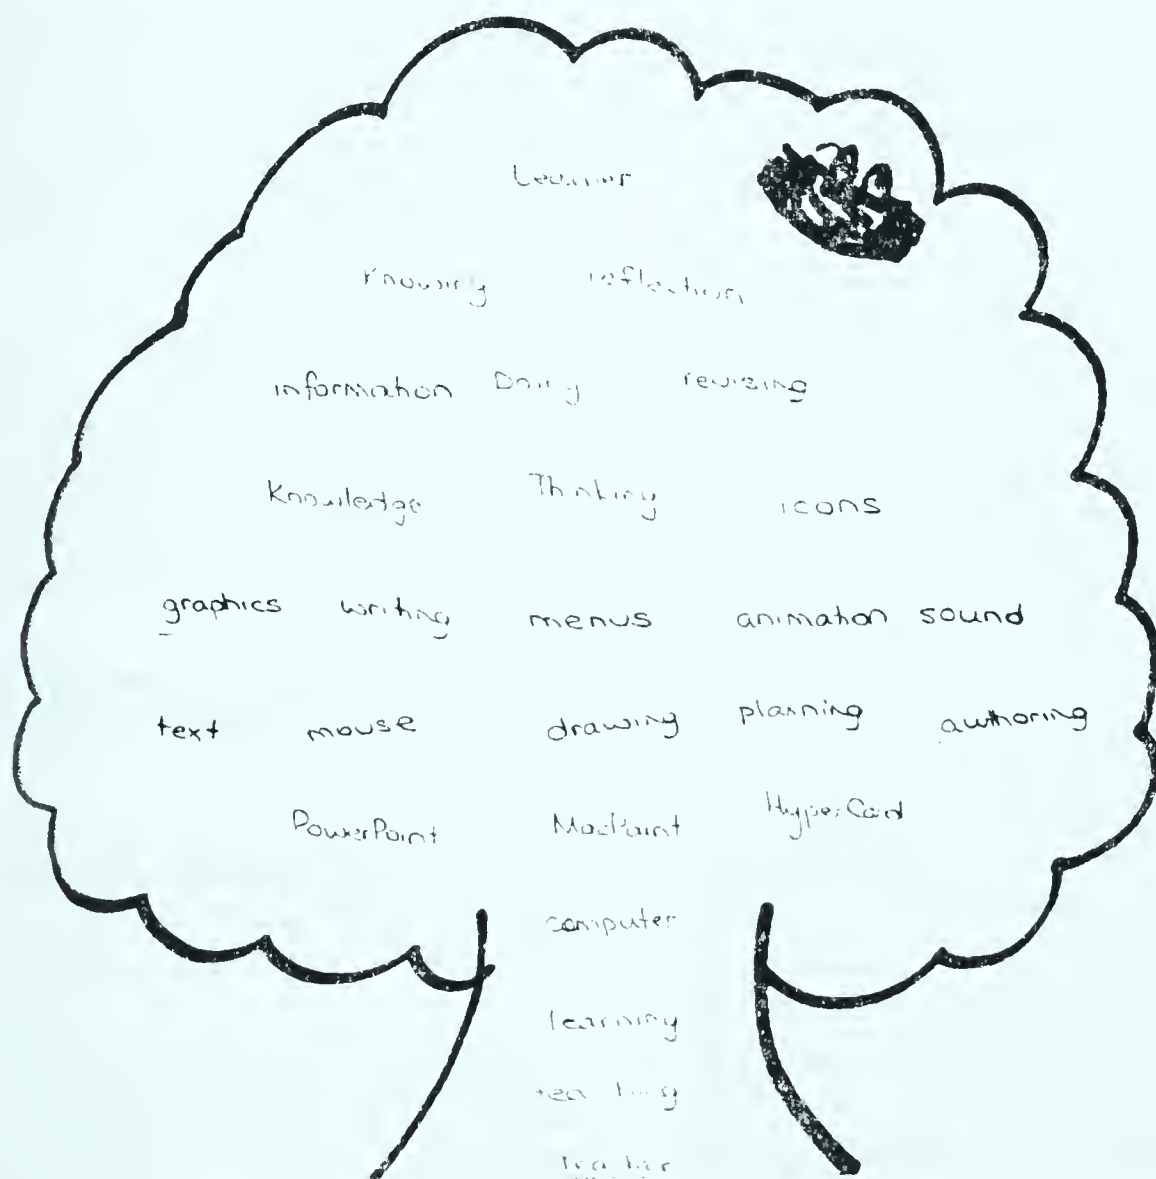 Learner
Knowing reflection
information Doing revising
Knowledge Thinking icons
graphics writing menus animation sound
text mouse drawing planning authoring
PowerPoint MacPaint HyperCard
computer
learning
teaching
teacher